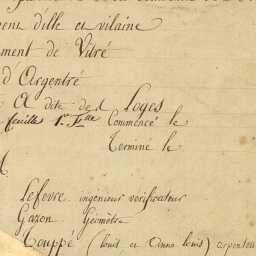 d'ille et vilaine
ment de Vitré
d'Argentré
A dite des Loges
feuille 1re Commencé le
Terminé le
Lefevre ingénieur vérificateur
Gazon Géomètre
Touppé (louis et Anne louis) arpenteu